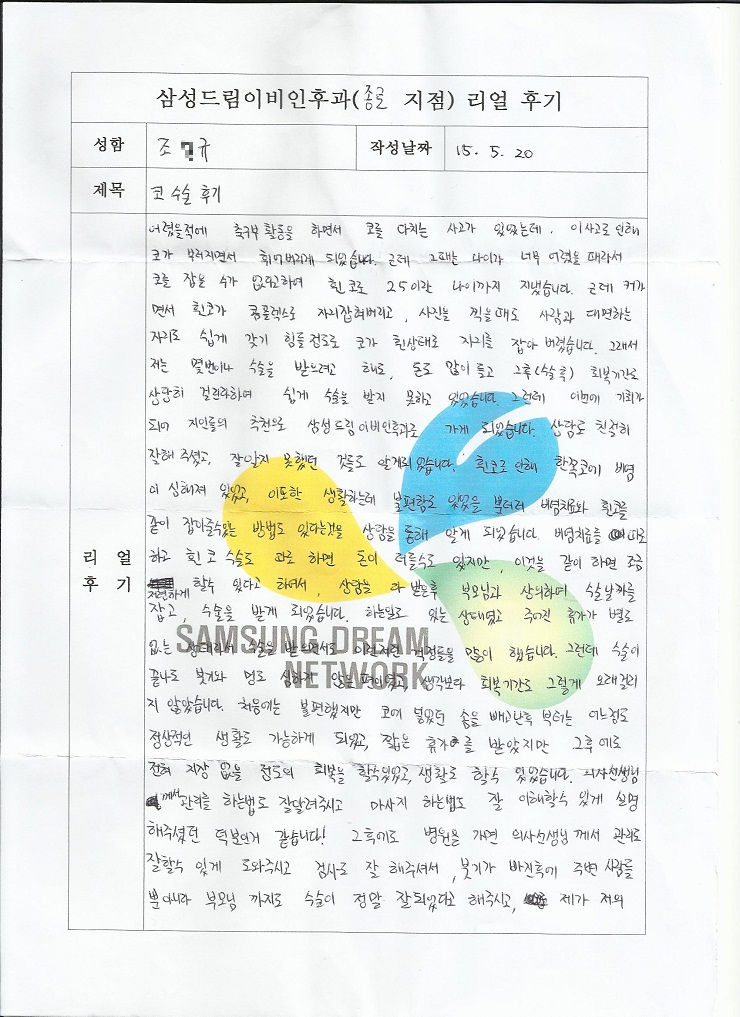 삼성드림이비인후과(종로 지점) 리얼 후기
성함 조 규 작성날짜 15. 5. 20
제목 코 수술 후기
리얼 후기
어렸을적에 축구부 활동을 하면서 코를 다치는 사고가 있었는데. 이사고로 인해
코가 부러지면서 휘어버리게 되었습니다. 근데 그때는 나이가 너무 어렸을 때라서
코를 잡을 수가 없다고하여 휜 코로 25이란 나이까지 지냈습니다. 근데 커가
면서 휜코가 콤플렉스로 자리잡혀버리고, 사진을 찍을때도 사람과 대면하는
자리도 쉽게 갖기 힘들 정도로 코가 휜상태로 자리를 잡아 버렸습니다. 그래서
저는 몇번이나 수술을 받으려고 해도, 돈도 많이 들고 그후(수술후) 회복기간도
상당히 걸린다하여 쉽게 수술을 받지 못하고 있었습니다. 그런데 이번에 기회가
되어 지인들의 추천으로 삼성드림이비인후과로 가게 되었습니다. 상담도 친절히
잘해 주셨고, 잘알지 못했던 것들도 알게되었습니다. 휜코로 인해 한쪽코에 비염
이 심해져 있었고, 이또한 생활하는데 불편함도 있었을 부터러 비염치료와 휜코를
같이 잡아줄수있는 방법도 있다는것을 상담을 통해 알게 되었습니다. 비염치료를 따로
하고 휜 코 수술도 따로 하면 돈이 더들수도 있지만, 이것을 같이 하면 조금
저렴하게 할수 있다고 하여서, 상담을 다 받은후 부모님과 상의하여 수술날짜를
잡고, 수술을 받게 되었습니다. 하는일도 있는 상태였고 주어진 휴가가 별로
없는 상태라서 수술을 받으면서도 이런저런 걱정들을 많이 했습니다. 그런데 수술이
끝나도 붓기와 멍도 심하지 않은 편이였고, 생각보다 회복기간도 그렇게 오래걸리
지 않았습니다. 처음에는 불편했지만 코에 넣었던 솜을 빼고난후 부터는 어느정도
정상적인 생활도 가능하게 되었고, 짧은 휴가를 받았지만 그후에도
전혀 지장 없을 정도의 회복을 할수있었고, 생활도 할수 있었습니다. 의사선생님
께서 관리를 하는법도 잘알려주시고 마사지 하는법도 잘 이해할수 있게 설명
해주셨던 덕분인거 같습니다! 그후에도 병원을 가면 의사선생님 께서 관리도
잘할수 있게 도와주시고 검사도 잘 해주셔서, 붓기가 빠진후에 주변 사람들
뿐아니라 부모님 까지도 수술이 정말 잘되었다고 해주시고, 제가 저의
SAMSUNG DREAM
NETWORK